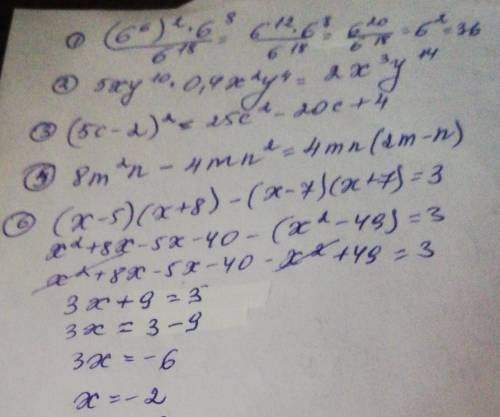 ① (6⁶)² · 6⁸ / 6¹⁸ = 6¹² · 6⁸ / 6¹⁸ = 6²⁰ / 6¹⁸ = 6² = 36
② 5xy¹⁰ · 0,4x²y⁴ = 2x³y¹⁴
③ (5c - 2)² = 25c² - 20c + 4
⑤ 8m²n - 4mn² = 4mn(2m - n)
⑥ (x - 5)(x + 8) - (x - 7)(x + 7) = 3
x² + 8x - 5x - 40 - (x² - 49) = 3
x² + 8x - 5x - 40 - x² + 49 = 3
3x + 9 = 3
3x = 3 - 9
3x = -6
x = -2